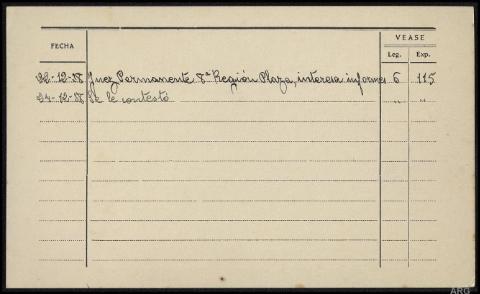 VEASE
FECHA
Leg. Exp.
22-12-38 Juez Permanente 8ª Región Plaza, interesa informes 6 115
24-12-38 Se le contestó " "
ARG